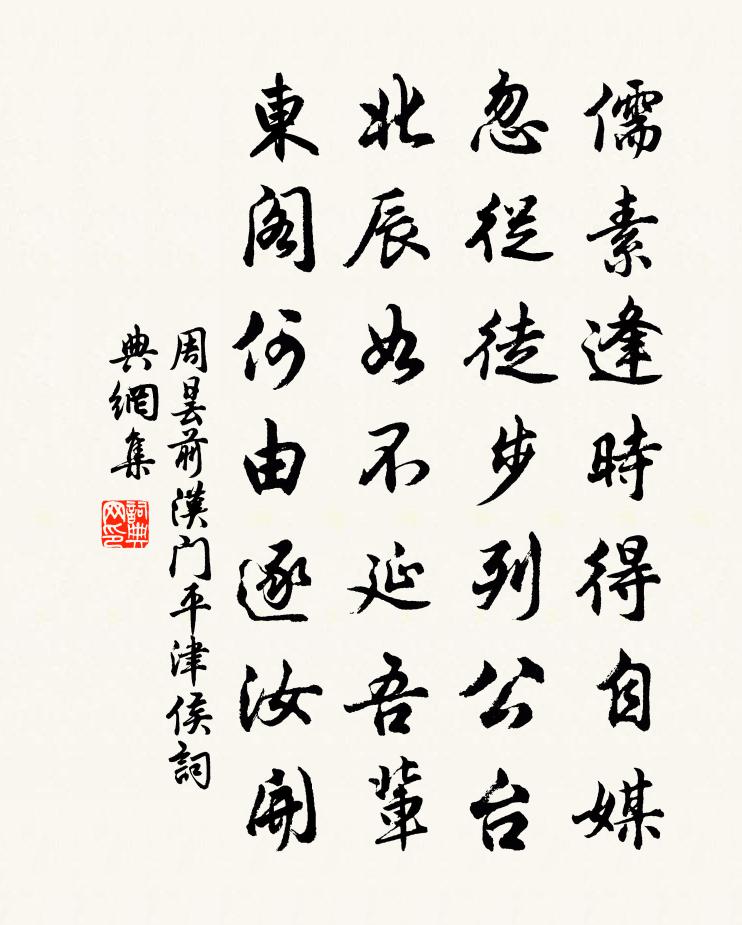 儒素逢時得自媒
忽從徒步列公台
北辰如不延吾輩
東閣何由逐汝開
周曇前漢門平津侯詞
典網集
詞典网印